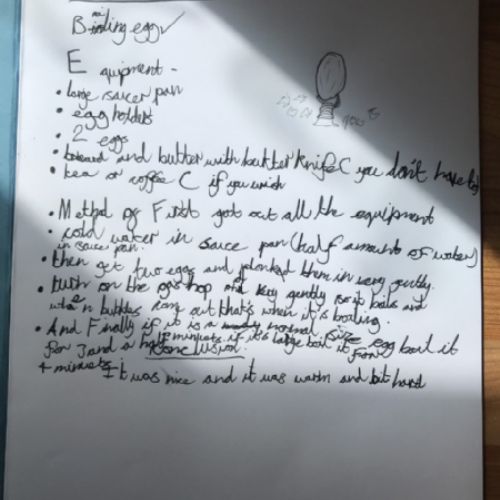 Boiling egg
Equipment -
• large saucer pan
• egg holders
• 2 eggs
• bread and butter with butter knife ( you don't have to)
• tea or coffee ( if you wish
• Method of First got out all the equipment
• cold water in sauce pan (half amount of water)
in sauce pan.
• then get two eggs and them in very gently.
• turn on the gas hop and very gently boils and
when bubbles come out that's when it's boiling.
• And Finally if it is a normal size egg boil it
for 3 and a half minutes if it's large boil it for
4 minutes
Conclusion
It was nice and it was warm and bit hard